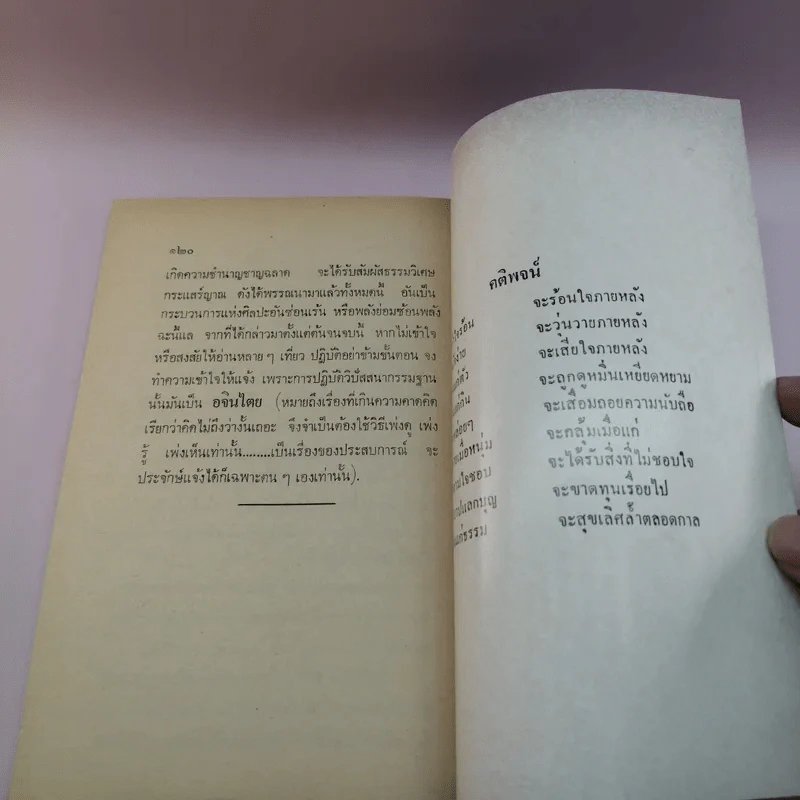 ๑๒๐
เกิดความชำนาญชาญฉลาด จะได้รับสัมผัสธรรมวิเศษ
กระแสร์ญาณ ดังได้พรรณนามาแล้วทั้งหมดนี้ อันเป็น
กระบวนการแห่งศิลปะอันซ่อนเร้น หรือพลังย่อมซ้อนพลัง
ฉะนี้แล จากที่ได้กล่าวมาตั้งแต่ต้นจนจบนี้ หากไม่เข้าใจ
หรือสงสัยให้อ่านหลายๆ เที่ยว ปฏิบัติอย่าข้ามขั้นตอน จง
ทำความเข้าใจให้แจ้ง เพราะการปฏิบัติวิปัสสนากรรมฐาน
นั้นมันเป็น อจินไตย (หมายถึงเรื่องที่เกินความคาดคิด
เรียกว่าคิดไม่ถึงว่างั้นเถอะ จึงจำเป็นต้องใช้วิธีเพ่งดู เพ่ง
รู้ เพ่งเห็นเท่านั้น........เป็นเรื่องของประสบการณ์ จะ
ประจักษ์แจ้งได้ก็เฉพาะตน ๆ เองเท่านั้น).
คติพจน์
จะร้อนใจภายหลัง
จะวุ่นวายภายหลัง
จะเสียใจภายหลัง
จะถูกดูหมิ่นเหยียดหยาม
จะเสื่อมถอยความนับถือ
จะกลุ้มเมื่อแก่
จะได้รับสิ่งที่ไม่ชอบใจ
จะขาดทุนเรื่อยไป
จะสุขเลิศล้ำตลอดกาล